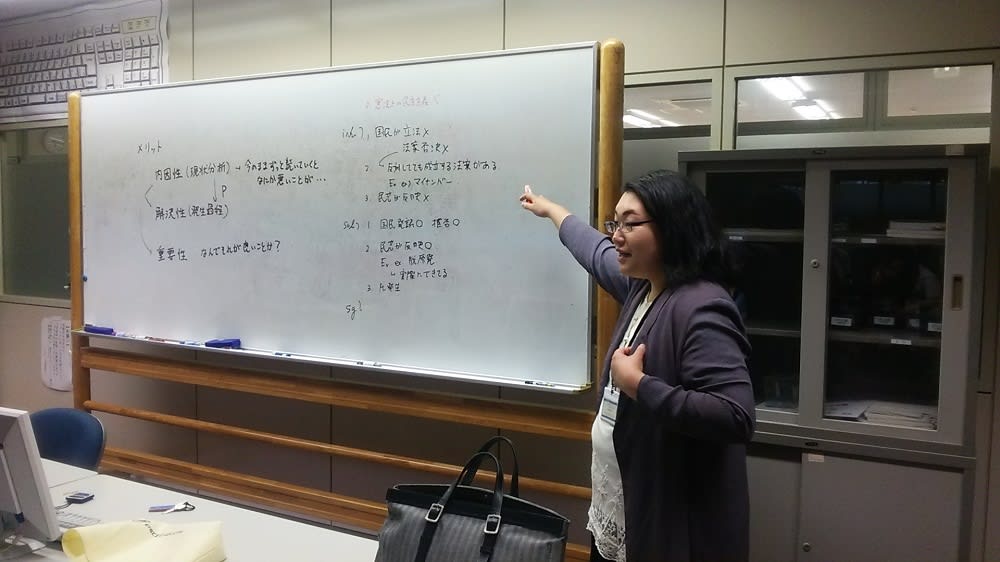 メリット
内因性(現状分析) → 今のままずっと続いていくと
なんか悪いことが…
P
解決性(発生過程)
重要性 なんでそれが良いことか?
inh)
1, 国民が立法×
法案否決×
2. 反対してても成立する法案がある
Ex) マイナンバー
3. 民意が反映×
sol)
1 国民発議○ 拒否○
2 民意が反映○
Ev ex 脱原発
↳ 実際にできてる
3.
sg)